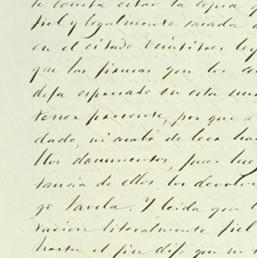 le consta estar la copia
fiel y legalmente sacada
en el citado veintitres ley
que las firmas que los
dijo expresado en esta
tener presente, por que a
dado, ni acabó de leer
llos documentos, pues
tancia de ellos los devolv
go Varela. Y leida que l
racion literalmente fiel
hasta el fin dijo que